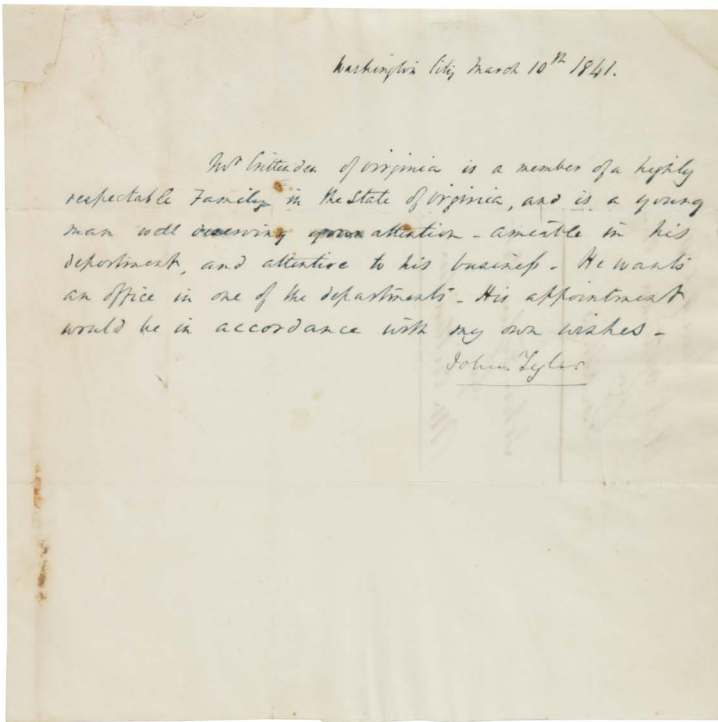 Washington City March 10th 1841.
Mr Crittenden of Virginia is a member of a highly
respectable Family in the State of Virginia, and is a young
man well deserving attention - amiable in his
deportment, and attentive to his business - He wants
an office in one of the departments - His appointment
would be in accordance with my own wishes -
John Tyler